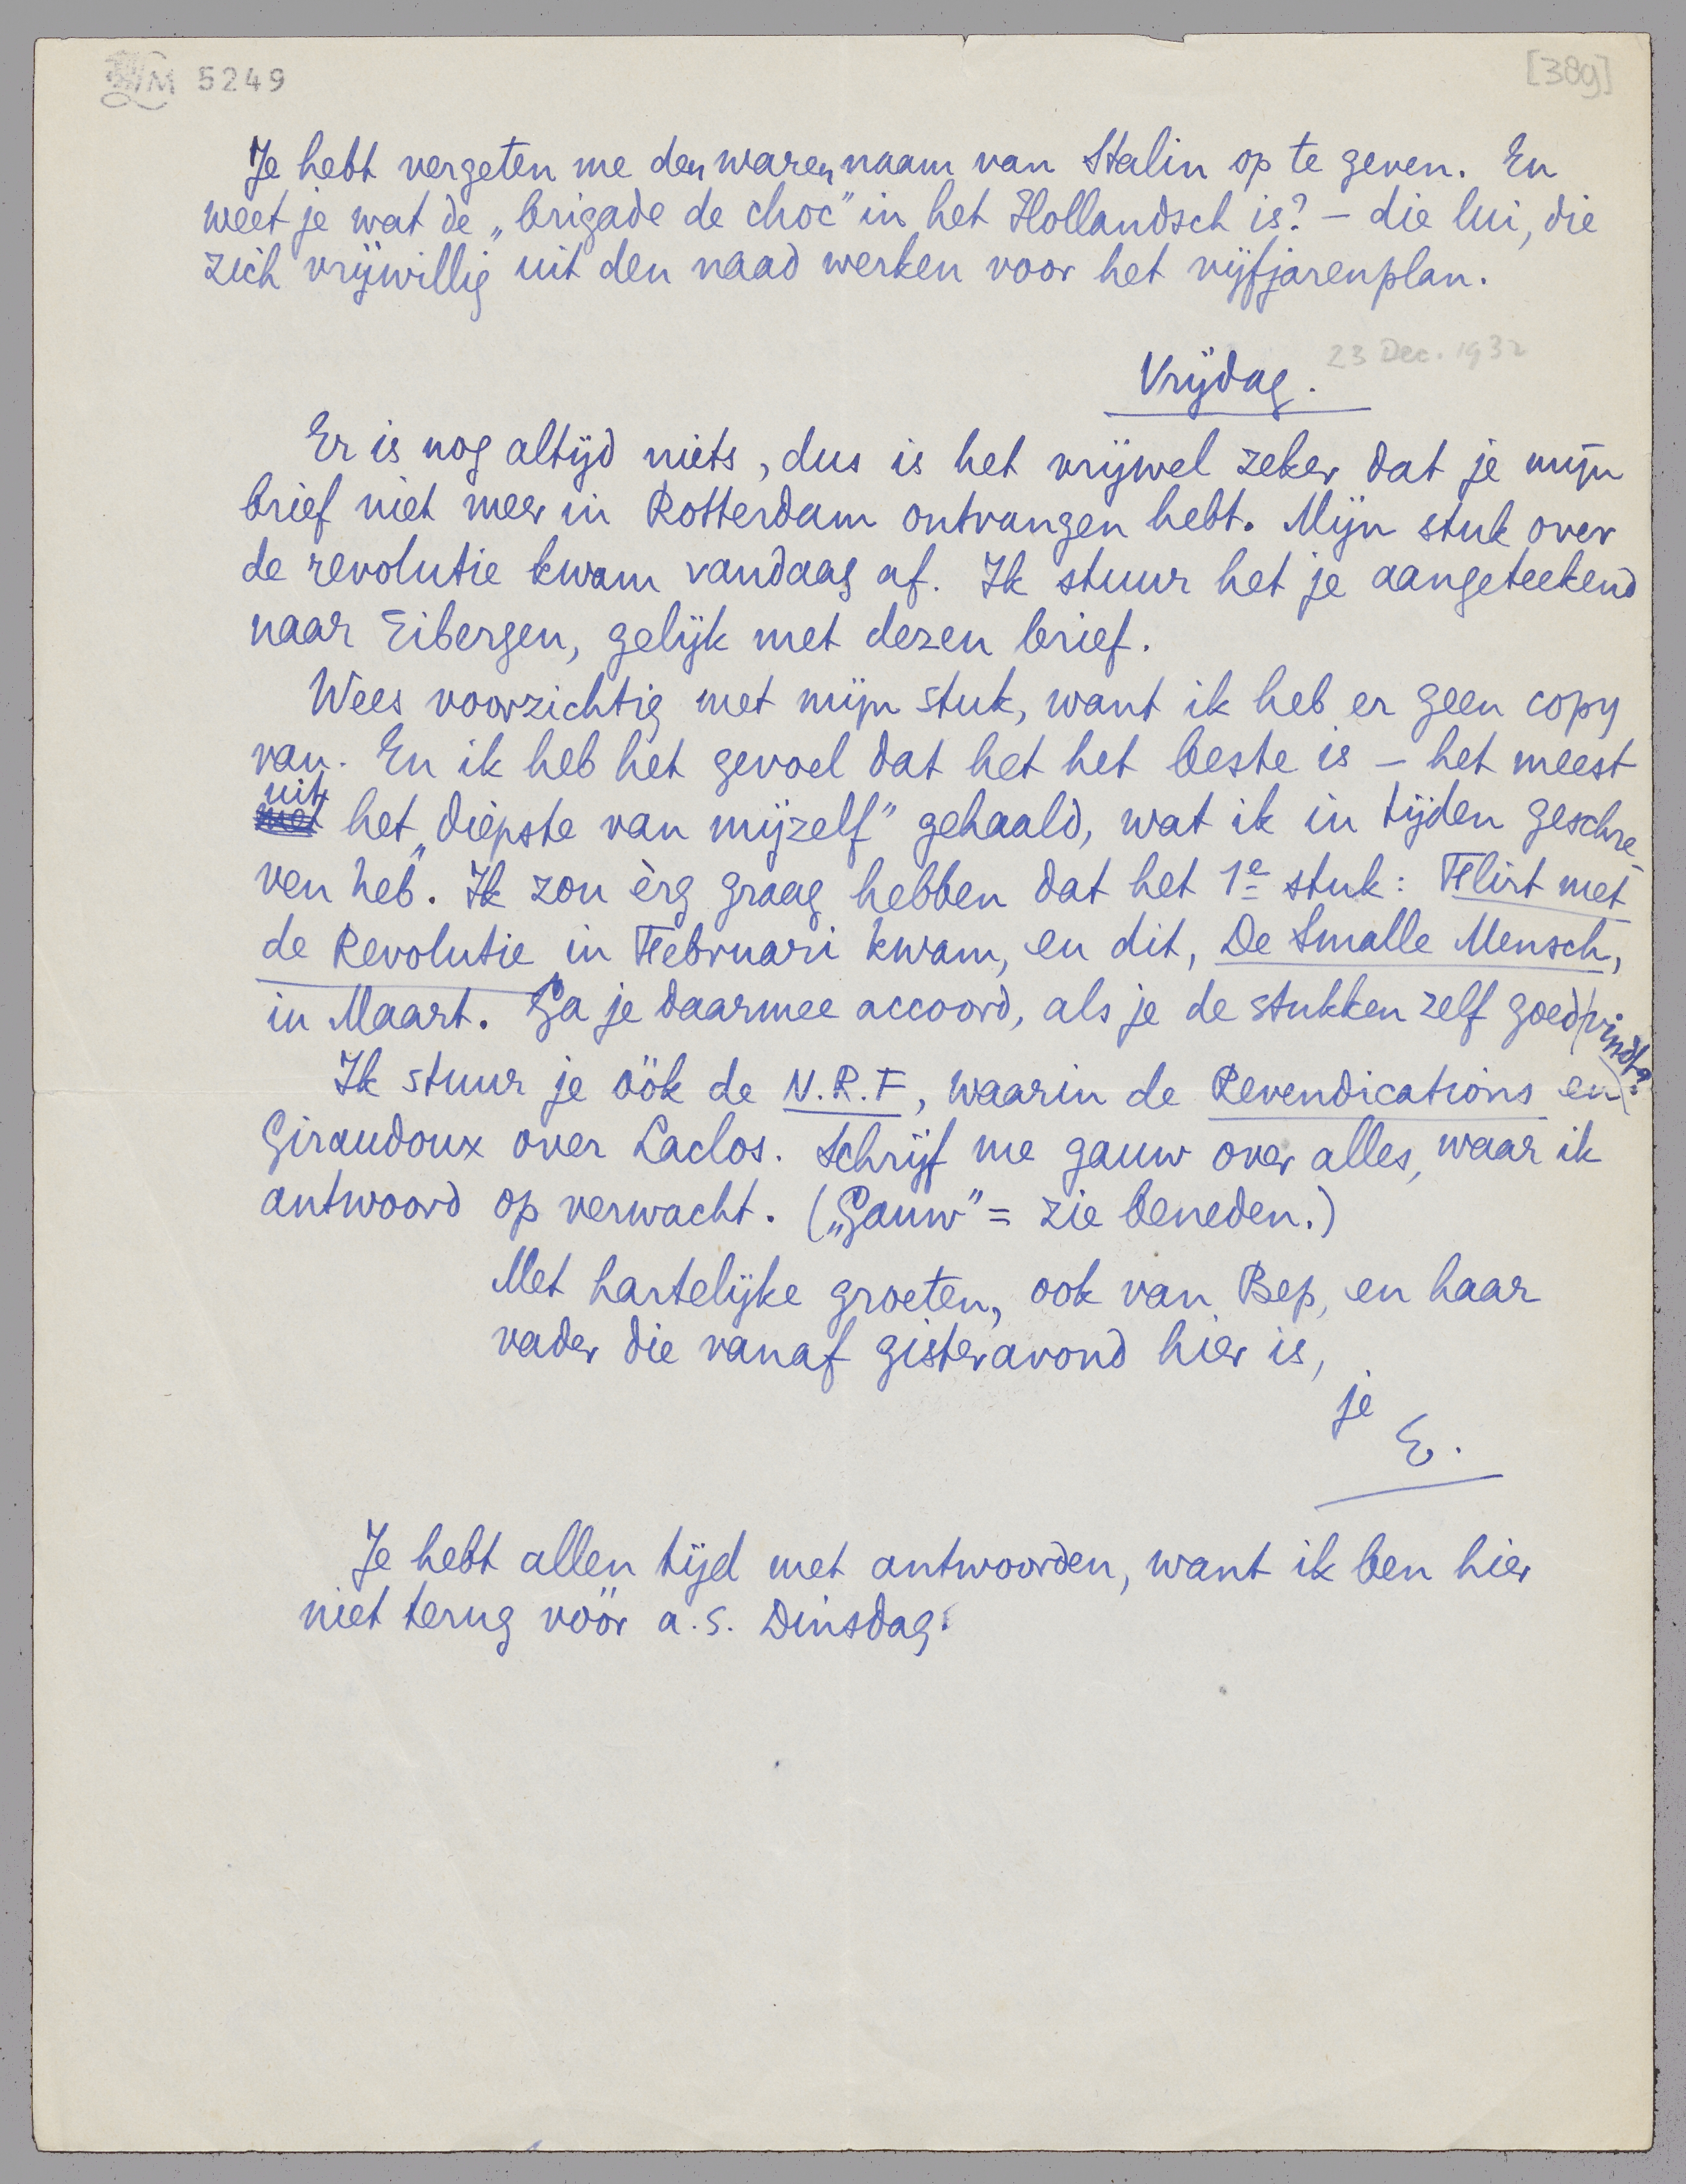 M 5249
[38g]
Je hebt vergeten me den waren naam van Stalin op te geven. En
weet je wat de „brigade de choc” in het Hollandsch is? – die lui, die
zich vrijwillig uit den naad werken voor het vijfjarenplan.
Vrijdag. 23 Dec. 1932
Er is nog altijd niets, dus is het vrijwel zeker dat je mijn
brief niet meer in Rotterdam ontvangen hebt. Mijn stuk over
de revolutie kwam vandaag af. Ik stuur het je aangeteekend
naar Eibergen, gelijk met dezen brief.
Wees voorzichtig met mijn stuk, want ik heb er geen copy
van. En ik heb het gevoel dat het het beste is – het meest
uit
met het „diepste van mijzelf” gehaald, wat ik in tijden geschre-
ven heb. Ik zou èrg graag hebben dat het 1e stuk: Flirt met
de Revolutie in Februari kwam, en dit, De Smalle Mensch,
in Maart. Ga je daarmee accoord, als je de stukken zelf goed vindt?
Ik stuur je óók de N.R.F, waarin de Revendications en
Giraudoux over Laclos. Schrijf me gauw over alles, waar ik
antwoord op verwacht. („Gauw” = zie beneden.)
Met hartelijke groeten, ook van Bep, en haar
vader die vanaf gisteravond hier is,
je
E.
Je hebt allen tijd met antwoorden, want ik ben hier
niet terug vóór a.s. Dinsdag.